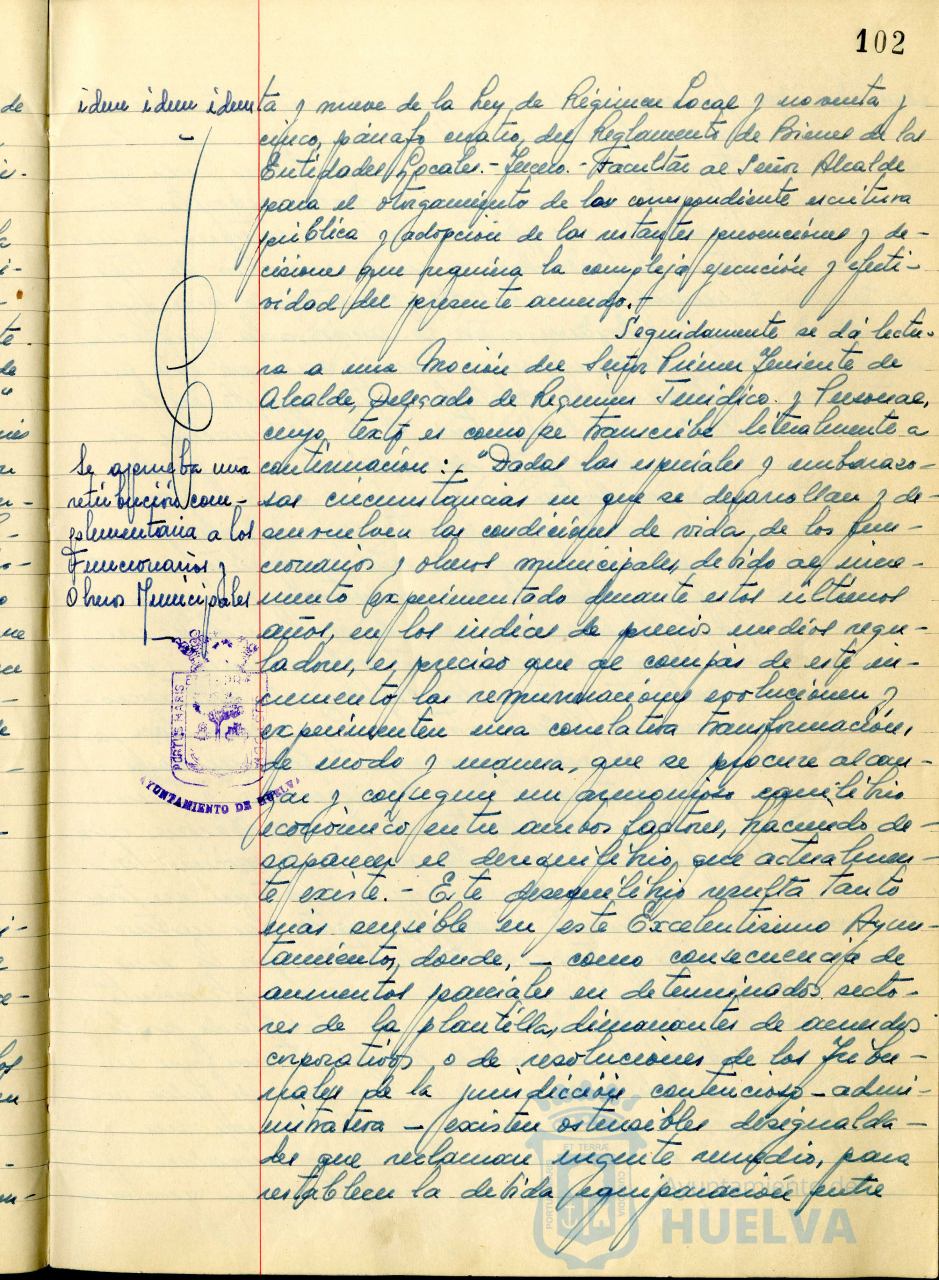 102
idem idem idem
ta y nueve de la Ley de Régimen Local y noventa y
cinco, párrafo cuatro, del Reglamento de Bienes de las
Entidades Locales.- Tercero.- Facultar al Señor Alcalde
para el otorgamiento de la correspondiente escritura
pública y adopción de las restantes prevenciones y de-
cisiones que requiera la completa ejecución y efecti-
vidad del presente acuerdo.-
Seguidamente se dá lectu-
ra a una Moción del Señor Primer Teniente de
Alcalde, Delegado de Regimen Juridico y Personal,
cuyo texto es como se transcribe literalmente a
Se aprueba una
retribución com-
plementaria a los
Funcionarios y
Obreros Municipales
continuación:- "Dadas las especiales y embarazo-
sas circunstancias en que se desarrollan y de-
senvuelven las condiciones de vida de los fun-
cionarios y obreros municipales, debido al incre-
mento experimentado durante estos ultimos
años, en los indices de precios medios regu-
ladores, es preciso que al compás de este in-
cremento las remuneraciones evolucionen y
experimenten una correlativa transformación,
de modo y manera, que se procure alcan-
zar y conseguir un armonioso equilibrio
económico entre ambos factores, haciendo de-
saparecer el desequilibrio que actualmen-
te existe.- Este desequilibrio resulta tanto
más sensible en este Excelentisimo Ayun-
tamiento, donde, - como consecuencia de
aumentos parciales en determinados secto-
res de la plantilla, dimanantes de acuerdos
corporativos o de resoluciones de los Tribu-
nales de la jurisdicción contencioso-admi-
nistrativa - existen ostensibles desigualda-
des que reclaman urgente remedio, para
restablecer la debida equiparación entre
PORTUS MARIS
AYUNTAMIENTO DE HUELVA
ET TERRAE
Ayuntamiento de
HUELVA